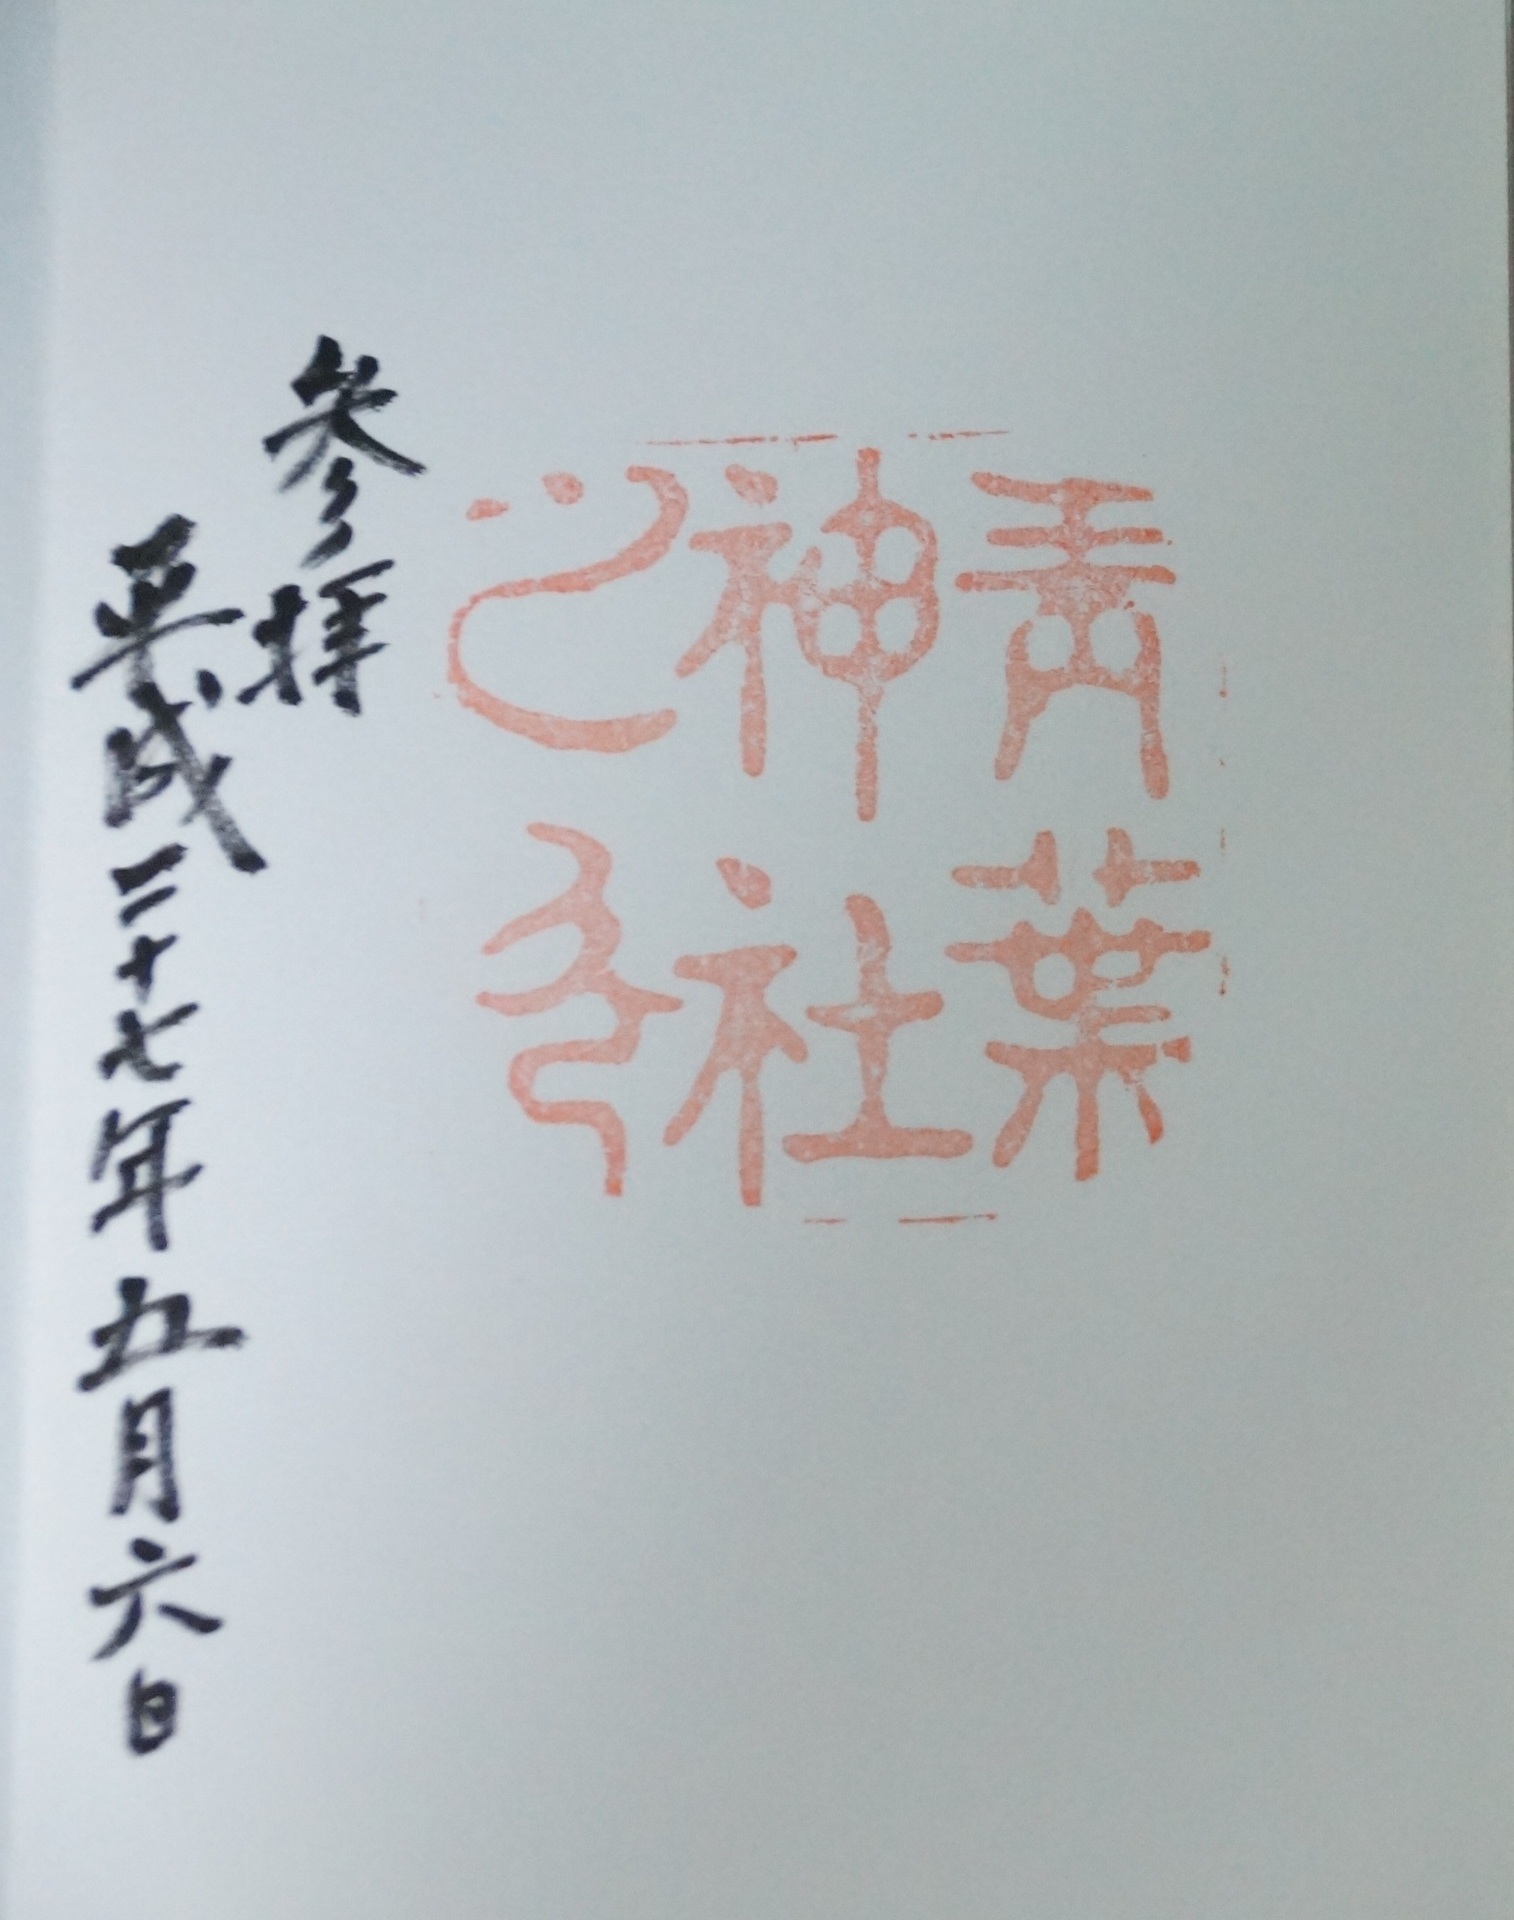 青葉
神社
之印
参拝
平成二十七年五月六日